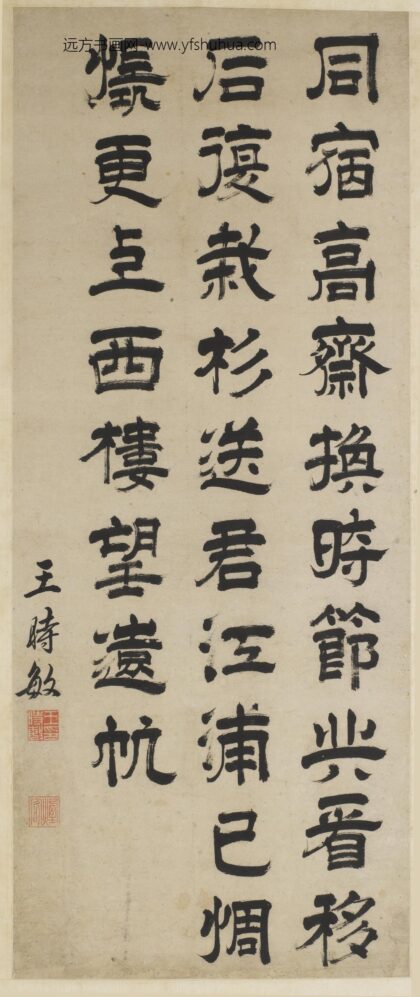 远方书画网 www.yfshuhua.com
同宿高齋換時節共看移
石復栽杉送君江浦已惆
悵更上西樓望遠帆
王時敏